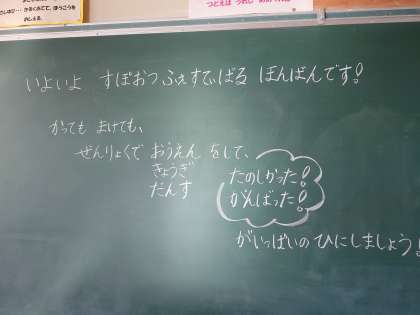 いよいよ すぽおつ ふぇすてぃばる ほんばんです!
かっても まけても、
ぜんりょくで おうえん をして、
きょうぎ
だんす
たのしかった!
がんばった!
がいっぱいの ひに しましょう!